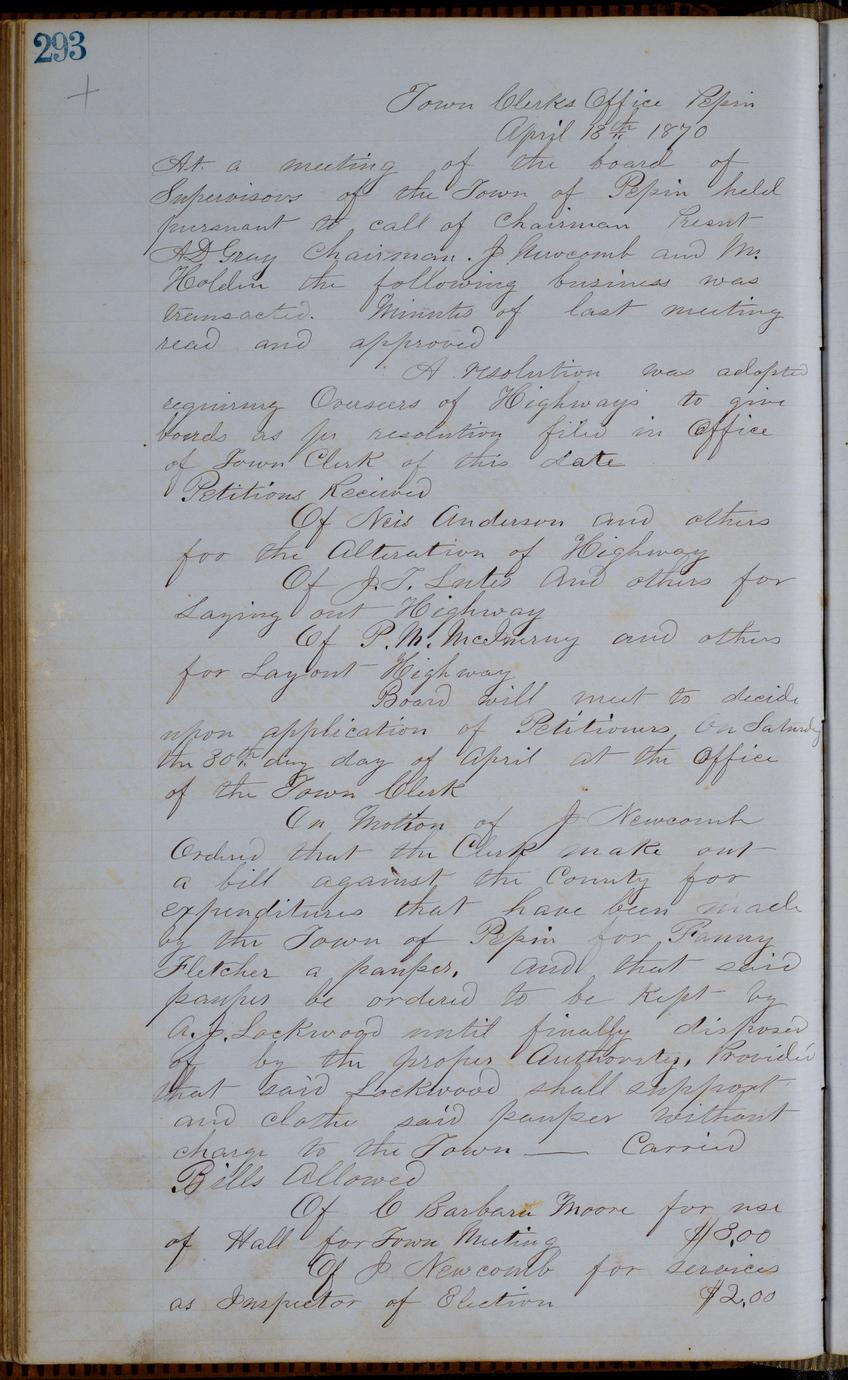 293
Town Clerks Office Pepin
April 13th 1870
At a meeting of the board of
Supervisors of the Town of Pepin held
pursuant to call of Chairman Presnt
AD Gray Chairman. J. Newcomb and M.
Holden the following business was
transacted. Minutes of last meeting
read and approved
A resolution was adopted
requiring Overseers of Highways to give
bonds as per resolution filed in Office
of Town Clerk of this date
Petitions Received
Of Neis Anderson and others
for the Alteration of Highway
Of J.T. Lutes And others for
Laying out Highway
Of P.M. McInerny and others
for Layout Highway
Board will meet to decide
upon application of Petitioners On Saturday
the 30th day day of April at the Office
of the Town Clerk
On Motion of J Newcomb
Ordered that the Clerk make out
a bill against the County for
expenditures that have been made
by the Town of Pepin for Fanny
Fletcher a pauper. And that said
pauper be ordered to be Kept by
A.J. Lockwood until finally disposed
of by the proper Authority. Provided
that said Lockwood shall support
and clothe said pauper without
charge to the Town — Carried
Bills Allowed
Of C Barbara Moore for use
of Hall for Town Meeting $3.00
Of J Newcomb for services
as Inspector of Election $2.00